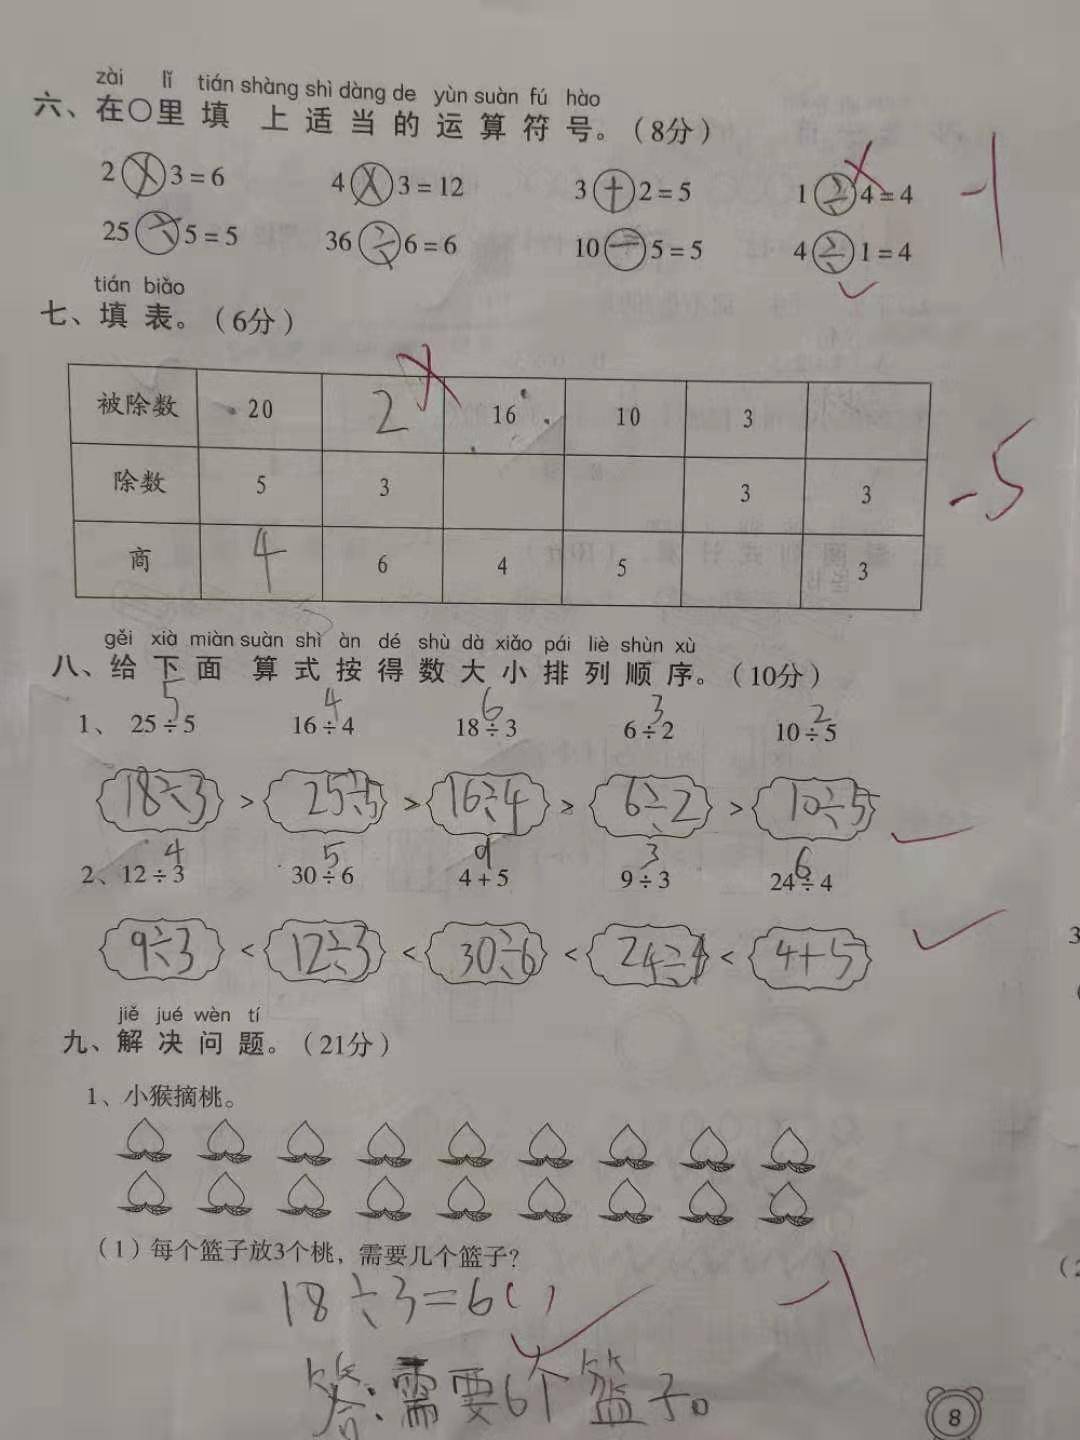 zài lǐ tián shàng shì dàng de yùn suàn fú hào
六、在○里填上适当的运算符号。（8分）
2×3=6 4×3=12 3+2=5 1÷4=4 -1
25÷5=5 36÷6=6 10-5=5 4÷1=4
tián biǎo
七、填表。（6分）
被除数 20 2 16 10 3
除数 5 3 3 3 -5
商 4 6 4 5 3
gěi xià miàn suàn shì àn dé shù dà xiǎo pái liè shùn xù
八、给下面算式按得数大小排列顺序。（10分）
5 4 6 3 2
1、 25÷5 16÷4 18÷3 6÷2 10÷5
18÷3 > 25÷5 > 16÷4 > 6÷2 > 10÷5
4 5 9 3 6
2、12÷3 30÷6 4+5 9÷3 24÷4
9÷3 < 12÷3 < 30÷6 < 24÷4 < 4+5
jiě jué wèn tí
九、解决问题。（21分）
1、小猴摘桃。
（1）每个篮子放3个桃，需要几个篮子？
18÷3=6( )
答:需要6个篮子。
8